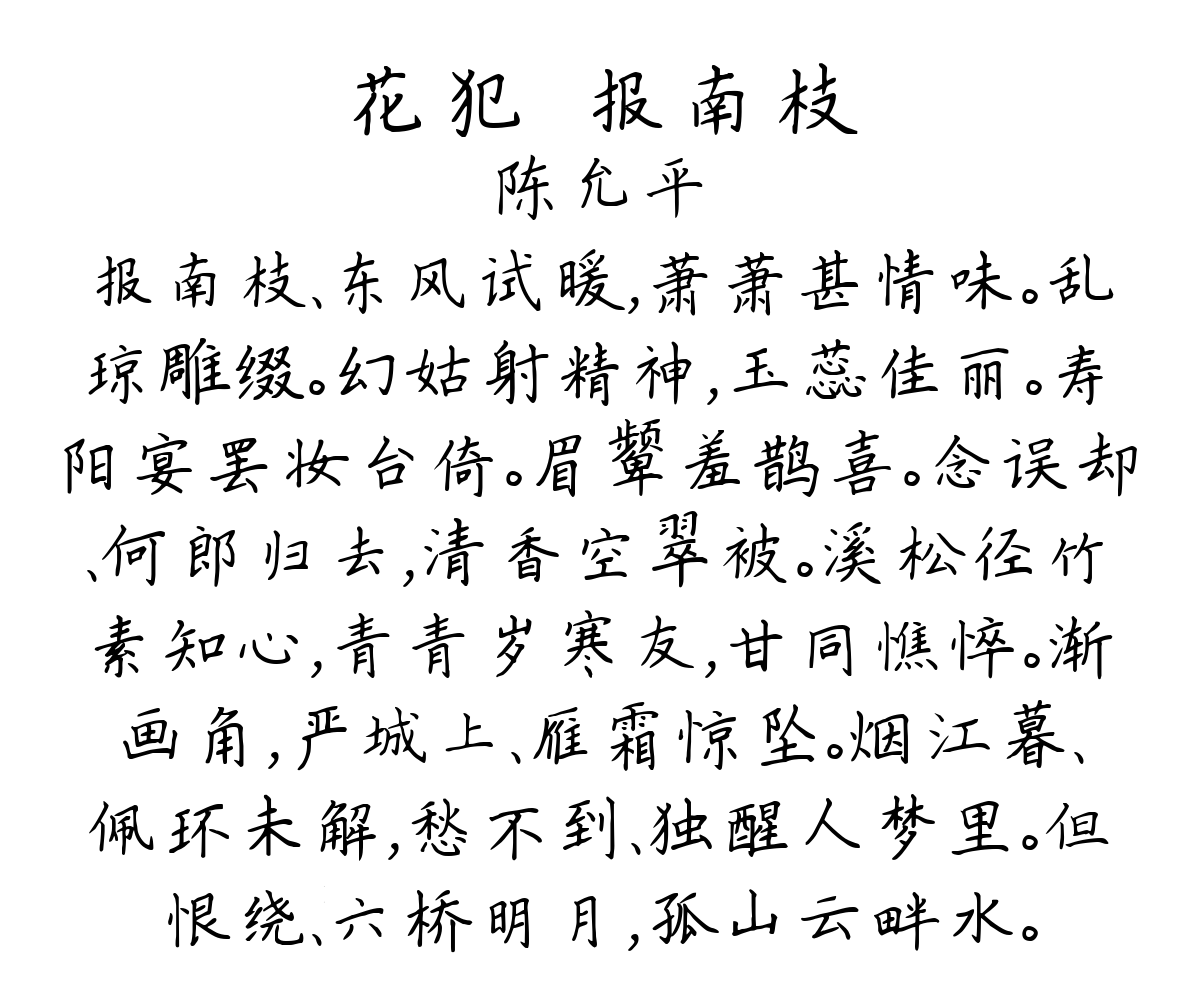 花犯 报南枝
陈允平
报南枝、东风试暖,萧萧甚情味。乱
琼雕缀。幻姑射精神,玉蕊佳丽。寿
阳宴罢妆台倚。眉颦羞鹊喜。念误却
、何郎归去,清香空翠被。溪松径竹
素知心,青青岁寒友,甘同憔悴。渐
画角,严城上、雁霜惊坠。烟江暮、
佩环未解,愁不到、独醒人梦里。但
恨绕、六桥明月,孤山云畔水。